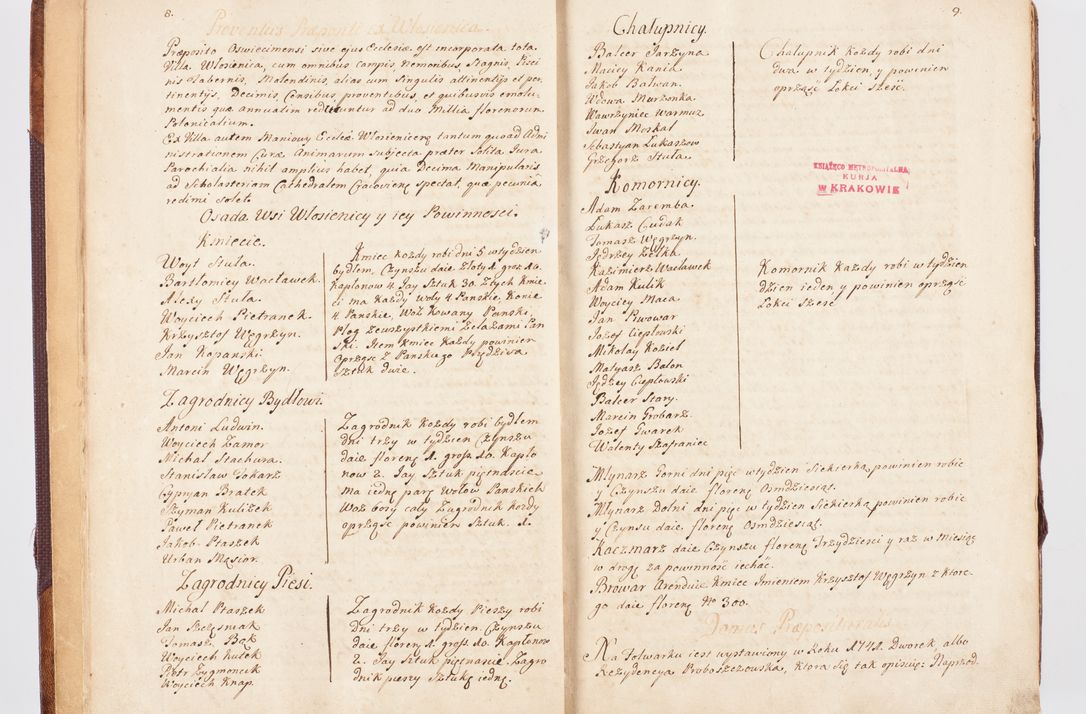 8.
Proventus Præpositi ex Włosienica.
Præposito Oswiecimensi sive ejus Ecclesiæ est incorporata tota
Villa Włosienica, cum omnibus Campis Nemoribus, Stagnis, Pisci
nis Tabernis, Molendinis, alias cum Singulis attinentijs et per
tinentijs, Decimis, Censibus, proventibus, et quibusvis emolu-
mentis quæ annuatim redituntur ad duo Millia florenorum
Polonicalium.
Ex Villa autem Maniowy Ecclæ Włosienicenę tantum quoad Admi
nistrationem Curæ Animarum Subjecta præter Solita Jura
Parochialia nihil amplius habet, quia Decima Manipularis
ad Scholasteriam Cathedralem Cracovienę Spectat, quæ pecunia
redimi Solet.
Osada Wsi Włosienicy y iey Powinnosci.
Kmiecie.
Woyt Stula.
Bartłomiey Wacławek.
Alexy Stula.
Woyciech Pietranek.
Krzysztof Węgrzyn.
Jan Kopanski.
Marcin Węgrzyn.
Kmiec kozdy robi dni 5 w tydzien
bydłem, Czynszu daie Złoty 1. grosz 10.
Kapłonow 4. Jay Sztuk 30. Ztych Kmie
ci ma Kazdy woły 4 Panskie, Konie
4 Panskie, Woz Kowany Panski,
Pług zewszystkiemi Zelazami Pan
ski. Item Kmiec Kazdy powinien
Oprząsc z Panskiego Przydziwa
Sztuk dwie.
Zagrodnicy Bydłowi.
Antoni Ludwin.
Woyciech Zamor
Michał Stachura.
Stanisław Tokarz
Cypryan Bratek
Szyman Kuliżek
Paweł Pietranek
Jakob Ptaszek
Urban Mąsior.
Zagrodnik Kozdy robi bydłem
dni trzy w tydzien Czynszu
daie florenę 1. grosz. 10. Kapło
now 2. Jay Sztuk piętnascie
ma iednę parę Wołow Panskich
Woz bosy cały Zagrodnik kozdy
oprząsc powinien Sztuk. 1.
Zagrodnicy Piesi.
Michał Ptaszek
Jan Szczęsniak
Tomasz Bąk
Woyciech Kutek
Piotr Zygmoncik
Woyciech Knap.
Zagrodnik Kozdy Pieszy robi
Dni trzy w tydzien. Czynszu
daie floren 1. grosz. 10. Kapłonow
2. Jay Sztuk piętnascie. Zagro
dnik pieszy Sztukę iednę.
9.
Chałupnicy.
Balcer Jarzyna
Maciey Kania
Jakob Bałwan.
Wdowa Marzonka
Wawrzyniec Warmuz
Iwan Moskal
Sebastyan Łukaszow
Grzegorz Stula.
Chałupnik Kozdy robi dni
dwa w tydzien, y powinien
oprząsc Łokci Szesc.
KSIĄŻĘCO METROPOLITALNA
KURJA
W KRAKOWIE
Komornicy.
Adam Zaremba.
Łukasz Cudak
Tomasz Węgrzyn.
Jędrzey Zelka
Kazimierz Wacławek
Adam Kulik
Woyciey Maca
Jan Piwowar
Jozef Ciepłowski
Mikołay Kozieł
Matyasz Balon
Jędrzey Ciepłowski
Balcer Stary.
Marcin Grobarz.
Jozef Gwarek
Walenty Szafraniec
Komornik Kazdy robi w tydzien
dzien ieden y powinien oprząsc
Łokci Szesc
Młynarz Gorni dni pięc w tydzien Siekierką, powinien robic
y Czynszu daie florenę Osmdziesiąt.
Młynarz Dolni dni pięc w tydzien Siekierką powinien robic
y Czynsu daie florenę Osmdziesiąt.
Kaczmarz daie Czynszu florenę Trzydziesci y raz w Miesiąc
w drogę za powinnosc iechac.
Browar Arenduie Kmiec Imieniem Krzysztof Węgrzyn z ktore-
go daie florenę No 300.
Domus Præpositurralis
Na Folwarku iest wystawiony w Roku 1748. Dworek, albo
Rezydencya Proboszczowska, Ktora się tak opisuię: Naprzod.